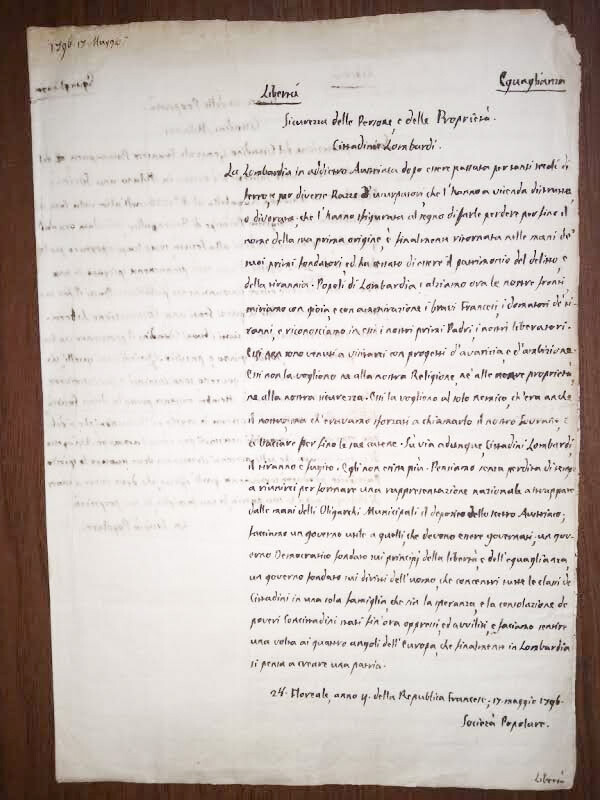 1796 17 Maggio
Libertá
Eguaglianza
Sicurezza delle Persone, e delle Proprietà.
Cittadini Lombardi.
La Lombardia in addietro Austriaca dopo essere passata per tanti secoli di
ferro, e per diverse Razze d'usurpatori, che l'hanno a vicenda distrutta,
o divorata, che l'hanno sfigurata al segno di farle perdere per fino il
nome della sua prima origine, è finalmente ritornata nelle mani de'
suoi primi fondatori, ed ha cessato di essere il patrimonio del delitto, e
della tirannia. Popoli di Lombardia: alziamo ora le nostre fronti
miriamo con gioia, e con ammirazione i bravi Francesi, i domatori de' ti-
ranni, e riconosciamo in essi i nostri primi Padri, i nostri liberatori.
Essi non sono venuti a visitarci con progetti d'avarizia e d'ambizione.
Essi non la vogliono nè alla nostra Religione, nè alle nostre proprietà,
nè alla nostra sicurezza. Essi la vogliono al solo nemico, ch'era anche
il nostro, ma ch'eravamo sforzati a chiamarlo il nostro Sovrano, e
a baciare per fino le sue catene. Su via adunque, Cittadini Lombardi,
il tiranno è fugito. Egli non esiste più. Pensiamo senza perdita di tempo
a riunirci per formare una rappresentazione nazionale, a strappare
dalle mani delli Oligarchi Municipali il deposito dello scettro Austriaco;
facciamo un governo utile a quelli, che devono essere governati; un gov-
erno Democratico fondato sui principj della libertà, e dell'eguaglianza,
un governo fondato sui diritti dell'uomo, che concentri tutte le classi de'
Cittadini in una sola famiglia che sia la speranza, e la consolazione de'
poveri Concittadini stati fin'ora oppressi, ed avviliti, e faciamo sentire
una volta ai quattro angoli dell'Europa, che finalmente in Lombardia
si pensa a creare una patria.
28. Floreale, anno 4. della Republica Francese, 17. maggio 1796.
Società Popolare.
Libertà